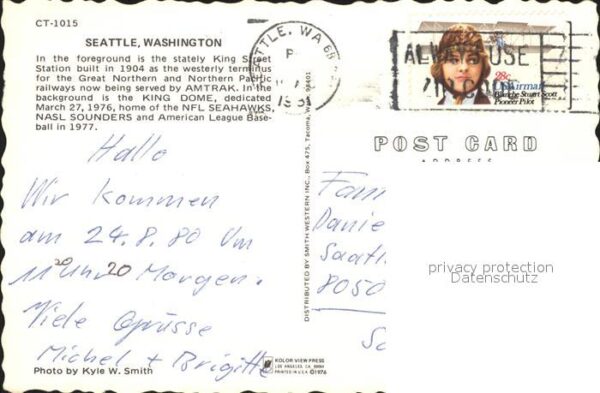 CT-1015
SEATTLE, WASHINGTON
In the foreground is the stately King Street
Station built in 1904 as the westerly terminus
for the Great Northern and Northern Pacific
railways now being served by AMTRAK. In the
background is the KING DOME, dedicated
March 27, 1976, home of the NFL SEAHAWKS,
NASL SOUNDERS and American League Base-
ball in 1977.
Hallo
Wir kommen
am 24.8.80 Um
11²⁰ Uhr 20 Morgen.
Viele Grüsse
Michel + Brigitte
Photo by Kyle W. Smith
DISTRIBUTED BY SMITH WESTERN INC., Box 475, Tacoma, Wa. 98401
KOLOR VIEW PRESS
LOS ANGELES, CA.
PRINTED IN U.S.A. ©1976
SEATTLE, WA
ALWAYS USE
ZIP CODE
28c
USAirmail
Blanche Stuart Scott
Pioneer Pilot
POST CARD
ADDRESS
Fam
Danie
Saatl
8050
privacy protection
Datenschutz